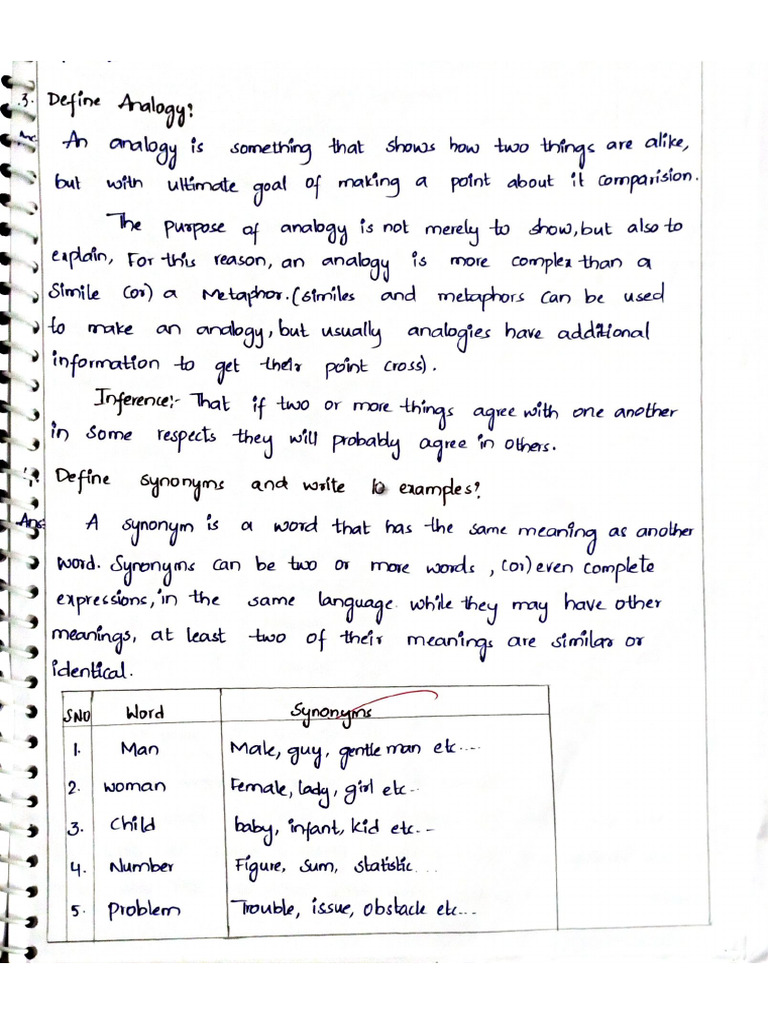 3. Define Analogy?
Ans: An analogy is something that shows how two things are alike,
but with ultimate goal of making a point about it comparision.
The purpose of analogy is not merely to show, but also to
explain, For this reason, an analogy is more complex than a
Simile (or) a Metaphor. (similes and metaphors can be used
to make an analogy, but usually analogies have additional
information to get their point cross).
Inference:- That if two or more things agree with one another
in some respects they will probably agree in others.
4. Define synonyms and write 10 examples?
Ans: A synonym is a word that has the same meaning as another
word. Synonyms can be two or more words, (or) even complete
expressions, in the same language. while they may have other
meanings, at least two of their meanings are similar or
identical.
SNO Word Synonyms
1. Man Male, guy, gentle man etc....
2. woman Female, lady, girl etc..
3. child baby, infant, kid etc..-
4. Number Figure, sum, statistic....
5. problem Trouble, issue, obstacle etc...